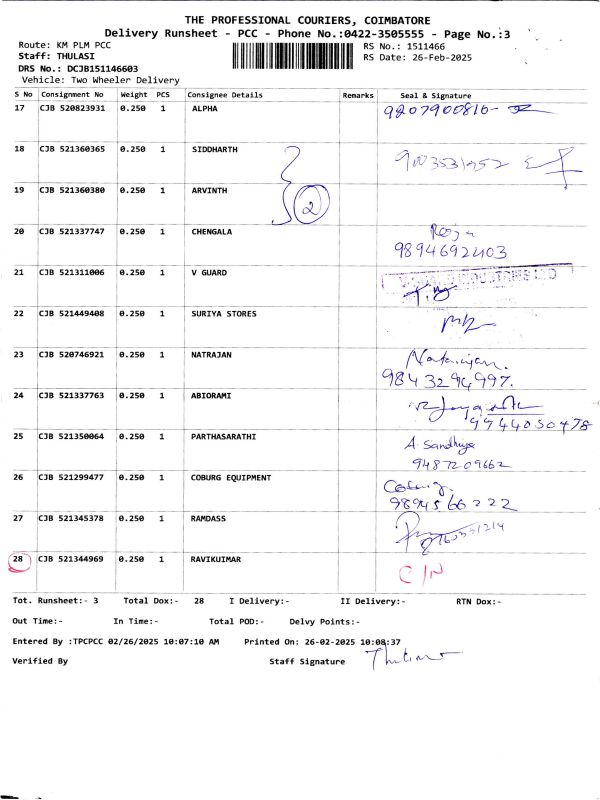 THE PROFESSIONAL COURIERS, COIMBATORE
Delivery Runsheet - PCC - Phone No.:0422-3505555 - Page No.:3
Route: KM PLM PCC RS No.: 1511466
Staff: THULASI RS Date: 26-Feb-2025
DRS No.: DCJB151146603
Vehicle: Two Wheeler Delivery
S No Consignment No Weight PCS Consignee Details Remarks Seal & Signature
17 CJB 520823931 0.250 1 ALPHA 9207900810-
18 CJB 521360365 0.250 1 SIDDHARTH
19 CJB 521360380 0.250 1 ARVINTH 2
20 CJB 521337747 0.250 1 CHENGALA
9894692403
21 CJB 521311006 0.250 1 V GUARD INDUSTRIES LTD
22 CJB 521449408 0.250 1 SURIYA STORES
23 CJB 520746921 0.250 1 NATRAJAN Natarajan.
9843294997.
24 CJB 521337763 0.250 1 ABIORAMI
9944050478
25 CJB 521350064 0.250 1 PARTHASARATHI A. Sandhya
9487209662
26 CJB 521299477 0.250 1 COBURG EQUIPMENT
9894566222
27 CJB 521345378 0.250 1 RAMDASS
28 CJB 521344969 0.250 1 RAVIKUIMAR C/N
Tot. Runsheet:- 3 Total Dox:- 28 I Delivery:- II Delivery:- RTN Dox:-
Out Time:- In Time:- Total POD:- Delvy Points:-
Entered By :TPCPCC 02/26/2025 10:07:10 AM Printed On: 26-02-2025 10:08:37
Verified By Staff Signature